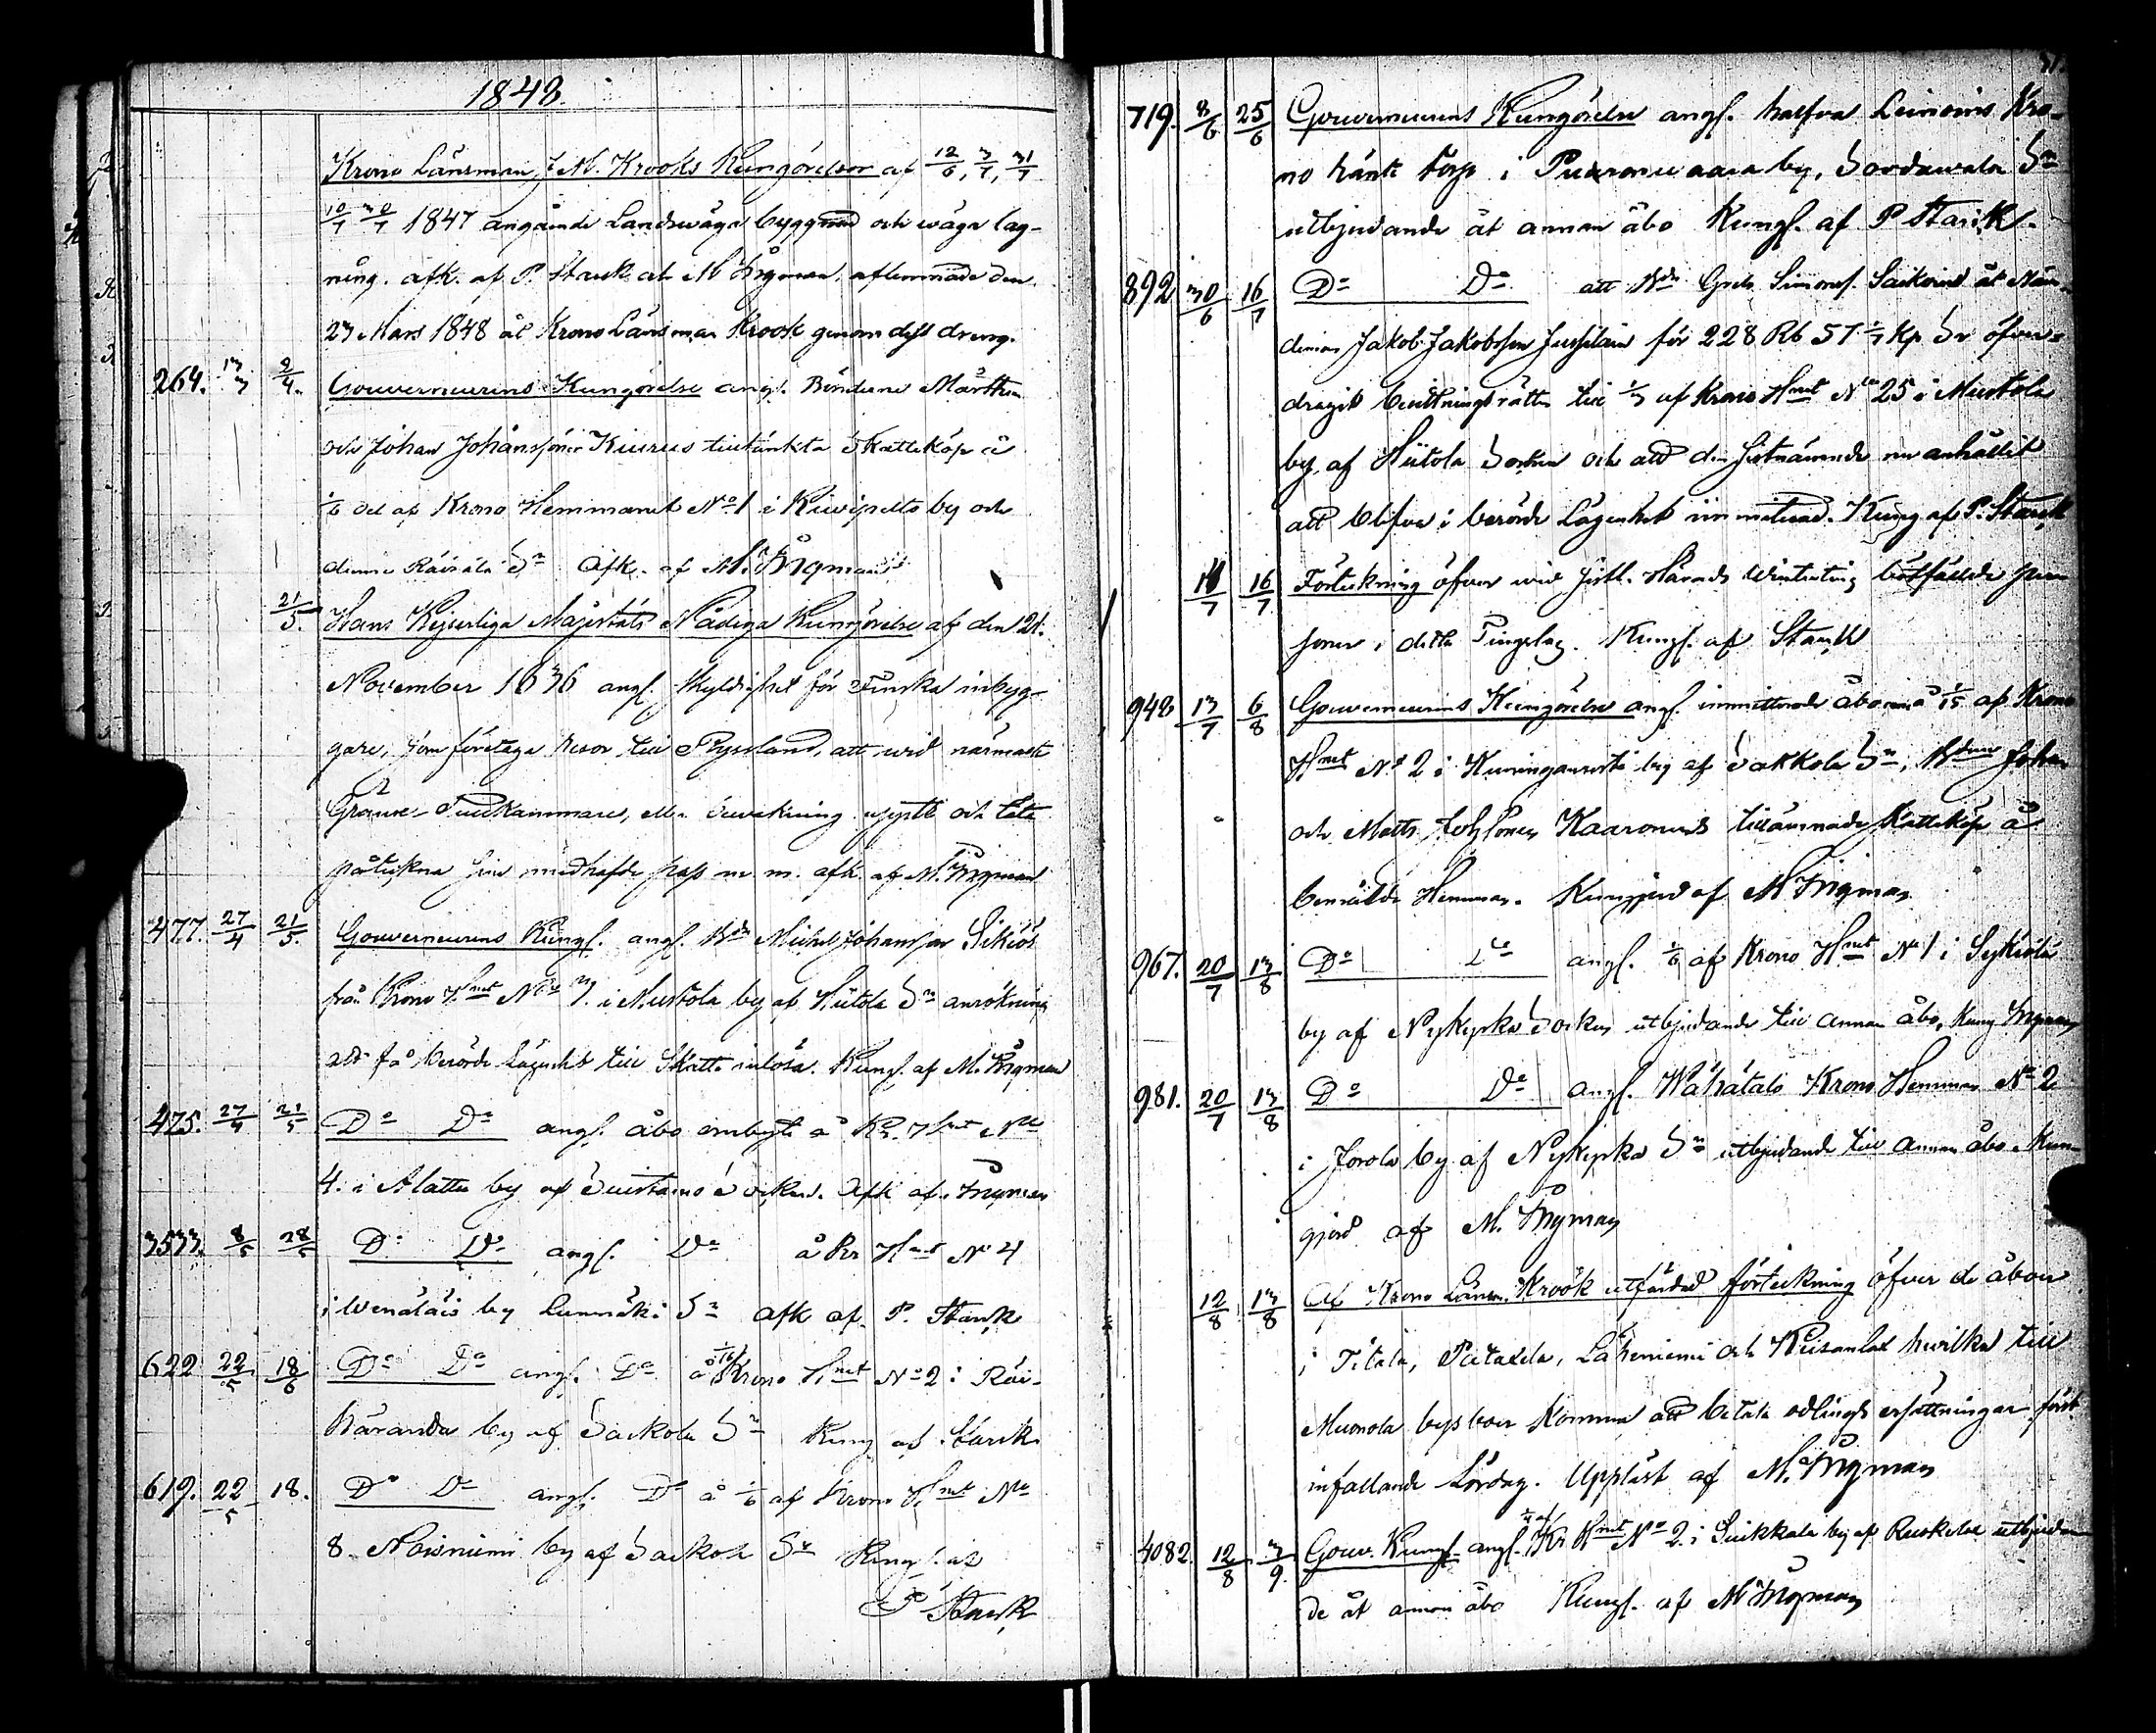 1848.
Krono Länsman J. M. Krooks Kungörelser af 12/6, 3/7, 31/7
10/7 30/7 1847 angående Landswägs byggnad och wäga lag-
ning. afk. af P. Starck och M Frigman, aflemnade den
23 Mars 1848 åt Krono Länsman Krook genom dess dreng.
264. 13/3 2/4. Gouverneurens Kungörelse angl. Bönderne Mårthen
och Johan Johanssöner Kiurus tilltänkta Skatteköp å
1/6 del af Krono Hemmanet No 1 i Kiwipelto by och
denne Räisälä Sn Afk. af M. Frigman
21/5. Hans Kejserliga Majestäts Nådiga Kungörelse af den 21.
November 1836 angl. skyldighet för Finska inbyg-
gare, som företaga resor till Ryssland, att wid närmaste
Gräns- Tullkammare, eller bewakning uppte och låta
påtekna sine medhafde pass m. m. afk. af M. Frigman
477. 27/4 21/5. Gouverneurens Kungl. angl. Bdn Michel Johansson Sikiös
från Krono Hmt No 3. i Mustola by af Hiitola Sn ansökning
att få berörde Lägenhet till Skatte inlösa. Kungl. af M. Frigman
475. 27/4 21/5 Do Do angl. åbo ombyte å Kr. Hmt No
4. i Alattu by af Suistamo Socken. Afk af Frigman
3533. 8/5 28/5 Do Do angl. Do å Kr Hmt No 4
i Wenäläis by Lumiäki Sn afk af P. Starck
622 22/5 18/6 Do Do angl. Do å 1/16 Krono Hmt No 2 i Räi-
häranda by af Sackola Sn Kung af Starck
619. 22/5 18. Do Do angl. Do å 1/6 af Krono Hmt No
8 Noisniemi by af Sackola Sn Kungl. af
P Starck
719. 8/6 25/6 Gouverneurens Kungörelse angl. halfva Leinonis Kro-
no hänte Torp i Puaronwaara by, Sordawala Sn
utbjudande åt annan åbo Kungl. af P Starck.
892 30/6 16/7 Do Do att Bdn Grels Simonss. Saikoin åt Mån-
denne Jakob Jakobsson Jussilain för 228 Rb 57 1/7 Kp Sr öfver-
dragit besittningsrätten till 1/3 af Krono Hmt No 25 i Mustola
by af Hiitola Socken och att den sistnämnde nu anhållit
att blifva i berörde Lägenhet immitterad. Kung af P. Starck
11/7 16/7 Förtekning öfver wid sistl. Härads Winterting bötfällde per-
soner i detta Tingslag. Kungl. af Starck
948 13/7 6/8 Gouverneurens Kungörelse angl. immitterade åboerna å 1/15 af Krono
Hmt No 2 i Kuninganristi by af Sakkola Sn, Bdne Johan
och Matts Joh Söner Kaaronens tillämnade Skatteköp å
bemälde Hemman. Kungjord af M Frigman
967. 20/7 13/8 Do Do angl. 1/6 af Krono Hmt No 1 i Sykiälä
by af Nykyrka Socken utbjudande till annan åbo, Kung Frigman
981. 20/7 13/8 Do Do angl. Wähätalo Krono Hemman No 2
i Jorola by af Nykyrka Sn utbjudande till annan åbo. Kun-
gjord af M. Frigman
12/8 13/8 Af Krono Länsm. Krook utfärdad förteckning öfver de åboer
i Titala, Putalela, Läheniemi och Kiisanlax hwilka till
Muonola bysboer komma att betala odlings ersättningar först
infallande Lördag. Uppläst af M. Frigman
4082 12/8 3/9. Gouv. Kungl. angl. 1/4 af Kr Hmt No 2. i Suikkala by af Ruskela utbjudan
de åt annan åbo Kungl. af M Frigman